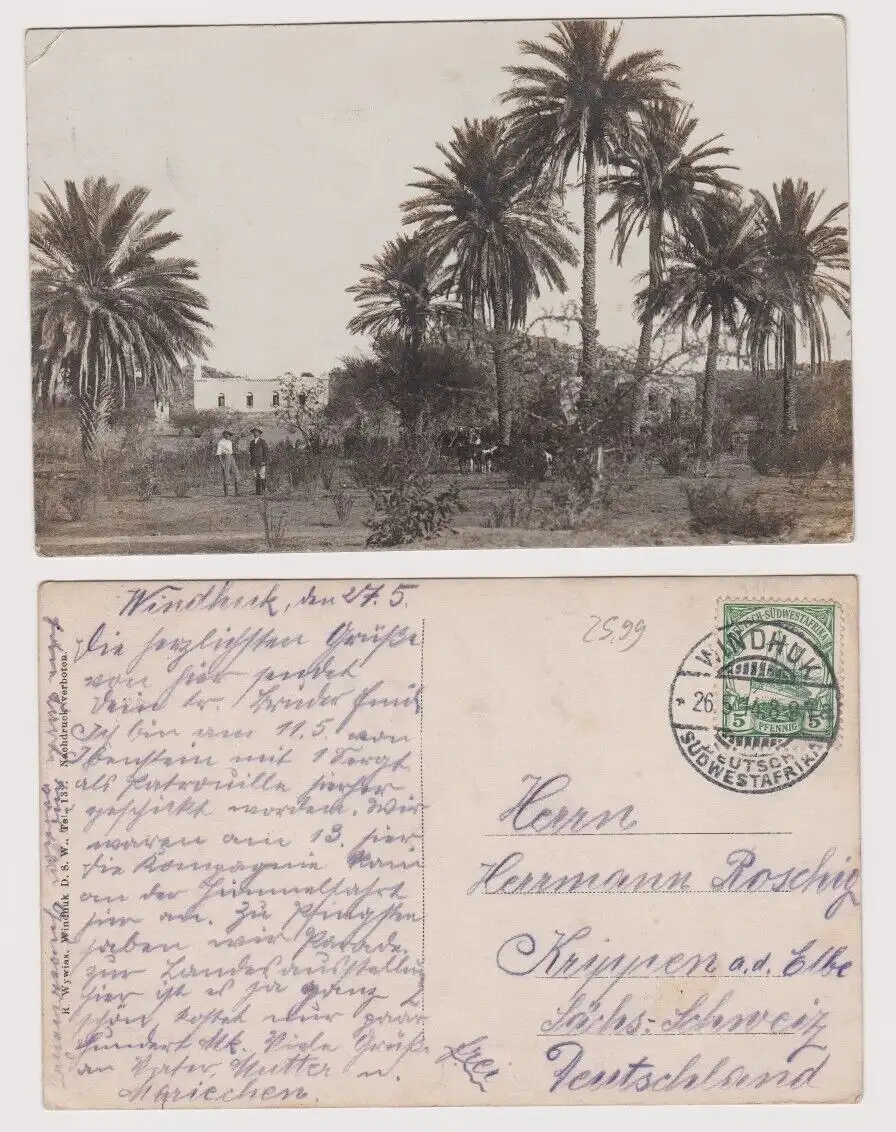 Windhuk, den 27. 5.
Die herzlichsten Grüße
von hier sendet
Dein tr. Bruder Emil
Ich bin am 11. 5. von
Ibenstein mit 1 Sergt.
als Patrouille hierher
geschickt worden. Wir
waren am 13. hier
die Kompagnie kam
an der Himmelfahrt
hier an. Zu Pfingsten
haben wir Parade.
zur Landesausstellung
hier ist es ja ganz
schön kostet nur paar
Hundert Mk. Viele Grüße
an Vater, Mutter u.
Mariechen.
R. Wywias, Windhuk D. S. W., Tel. 137. Nachdruck verboten.
25,99
DEUTSCH-SÜDWESTAFRIKA
5 PFENNIG 5
WINDHUK
26.5.14.8-9
DEUTSCH-
SÜDWESTAFRIKA
Herrn
Herrmann Roschig
Krippen a. d. Elbe
Sächs. Schweiz
Deutschland